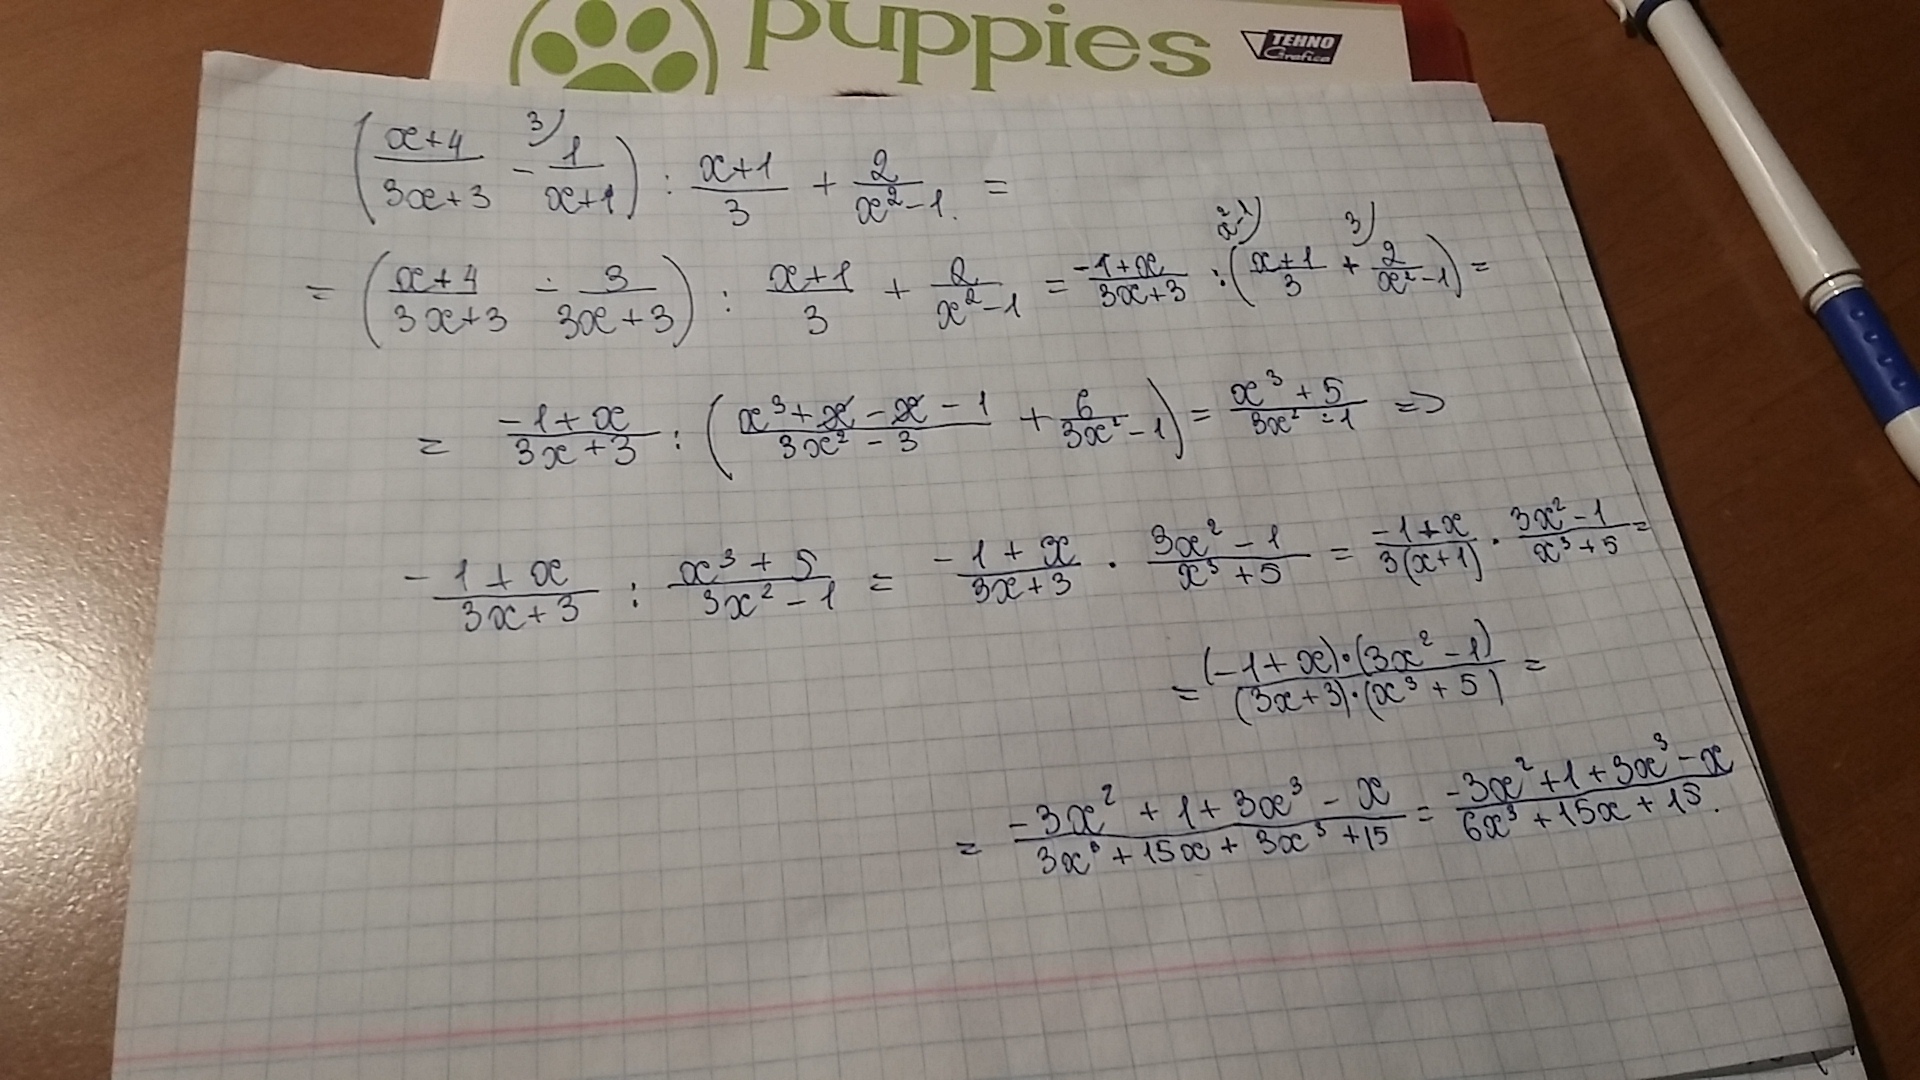 puppies
TEHNO
Grafica
(x+4/3x+3 - 3) 1/x+1) : x+1/3 + 2/x²-1. =
= (x+4/3x+3 - 3/3x+3) : x+1/3 + 2/x²-1 = -1+x/3x+3 : (x²-1) x+1/3 + 3) 2/x²-1) =
= -1+x/3x+3 : (x³+x-x-1/3x²-3 + 6/3x²-1) = x³+5/3x²-1 =>
-1+x/3x+3 : x³+5/3x²-1 = -1+x/3x+3 · 3x²-1/x³+5 = -1+x/3(x+1) · 3x²-1/x³+5 =
= (-1+x)·(3x²-1)/(3x+3)·(x³+5) =
= -3x²+1+3x³-x/3x³+15x+3x³+15 = -3x²+1+3x³-x/6x³+15x+15.